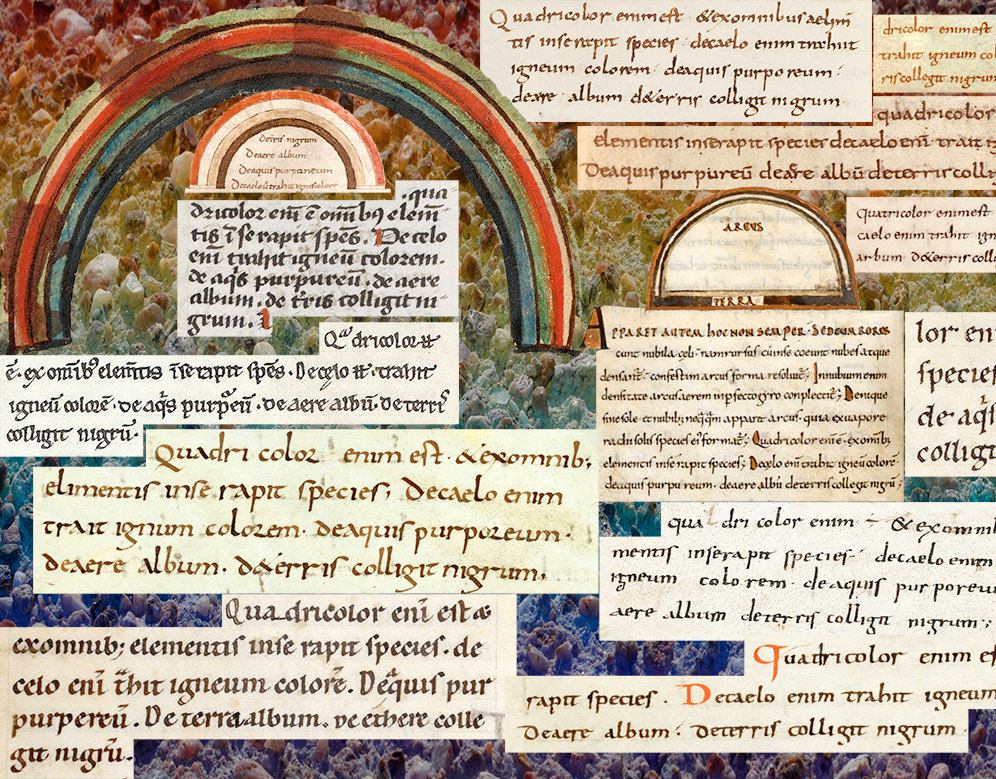 Quadricolor enim est · & ex omnibus aelim
tis inse rapit species · decaelo enim trahit
igneum colorem · deaquis purporeum ·
deare · album d&erris colligit nigrum ·
dricolor enim est
trahit igneum co
ris collegit nigrum
quadricolor
elementis inserapit species decaelo eni trait i
Deaquis purpureū deare albū deterris coll
Deteris nigrum
Deaere album
Deaquis purpureum
Decaelo trahit igne colore
· qua
dricolor eni ē omib9 elem̄
tis ī se rapit spēs. De celo
eni trahit igneū colorem.
de aq̄s purpureū. de aere
album. de t̄ris colligit ni
grum.
ARCUS
TERRA
Quatricolor enim est
caelo enim trahit ign
arbum · d&erris colli
PPARET AUTEM hoc NON SEMPER · SEDCUM RORES
cunt nubila celi · nam rursus cum se coeunt nubes atque
densant · confestim arcus forma resoluit; In nubium enim
densitate arcus aerem inpsecto gyro complectit; Denique
sine sole et nubib; neq̄q̄m apparet arcus · quia ex uapore
radii solis species ei format; Quadricolor enim ē · ex omib;
elementis inse rapit species; De celo eni trahit igneū colorē ·
deaquis purpureum · deaere albū deterris collegit nigrū;
Qua dricolor
ē · ex omīb; elem̄tis ī se rapit spēs · De celo · trahit
igneū colorē · de aq̄s purp̄eū · de aere albū · de terris
colligit nigrū ·
lor en
species
de · aq̄s
colligit
Quadri color enim est · & ex omnib;
elimentis inse rapit species; Decaelo enim
trait ignium colorem · deaquis purporeum ·
deaere album · d&erris colligit nigrum,
qua dri color enim & ex omnib
mentis inserapit species · decaelo enim
igneum colo rem · deaquis pur poreu
aere album deterris colligit nigrum;
Quadricolor enī est &
exomnib; elementis inse rapit species. de
celo enī t̄hit igneum colorē. Deq̄uis pur
purpereū. De terra album. de ethere colle
git nigrū.
Quatricolor enim es
rapit species · Decaelo enim trahit igneum
Deaere album · deterris colligit nigrum ·